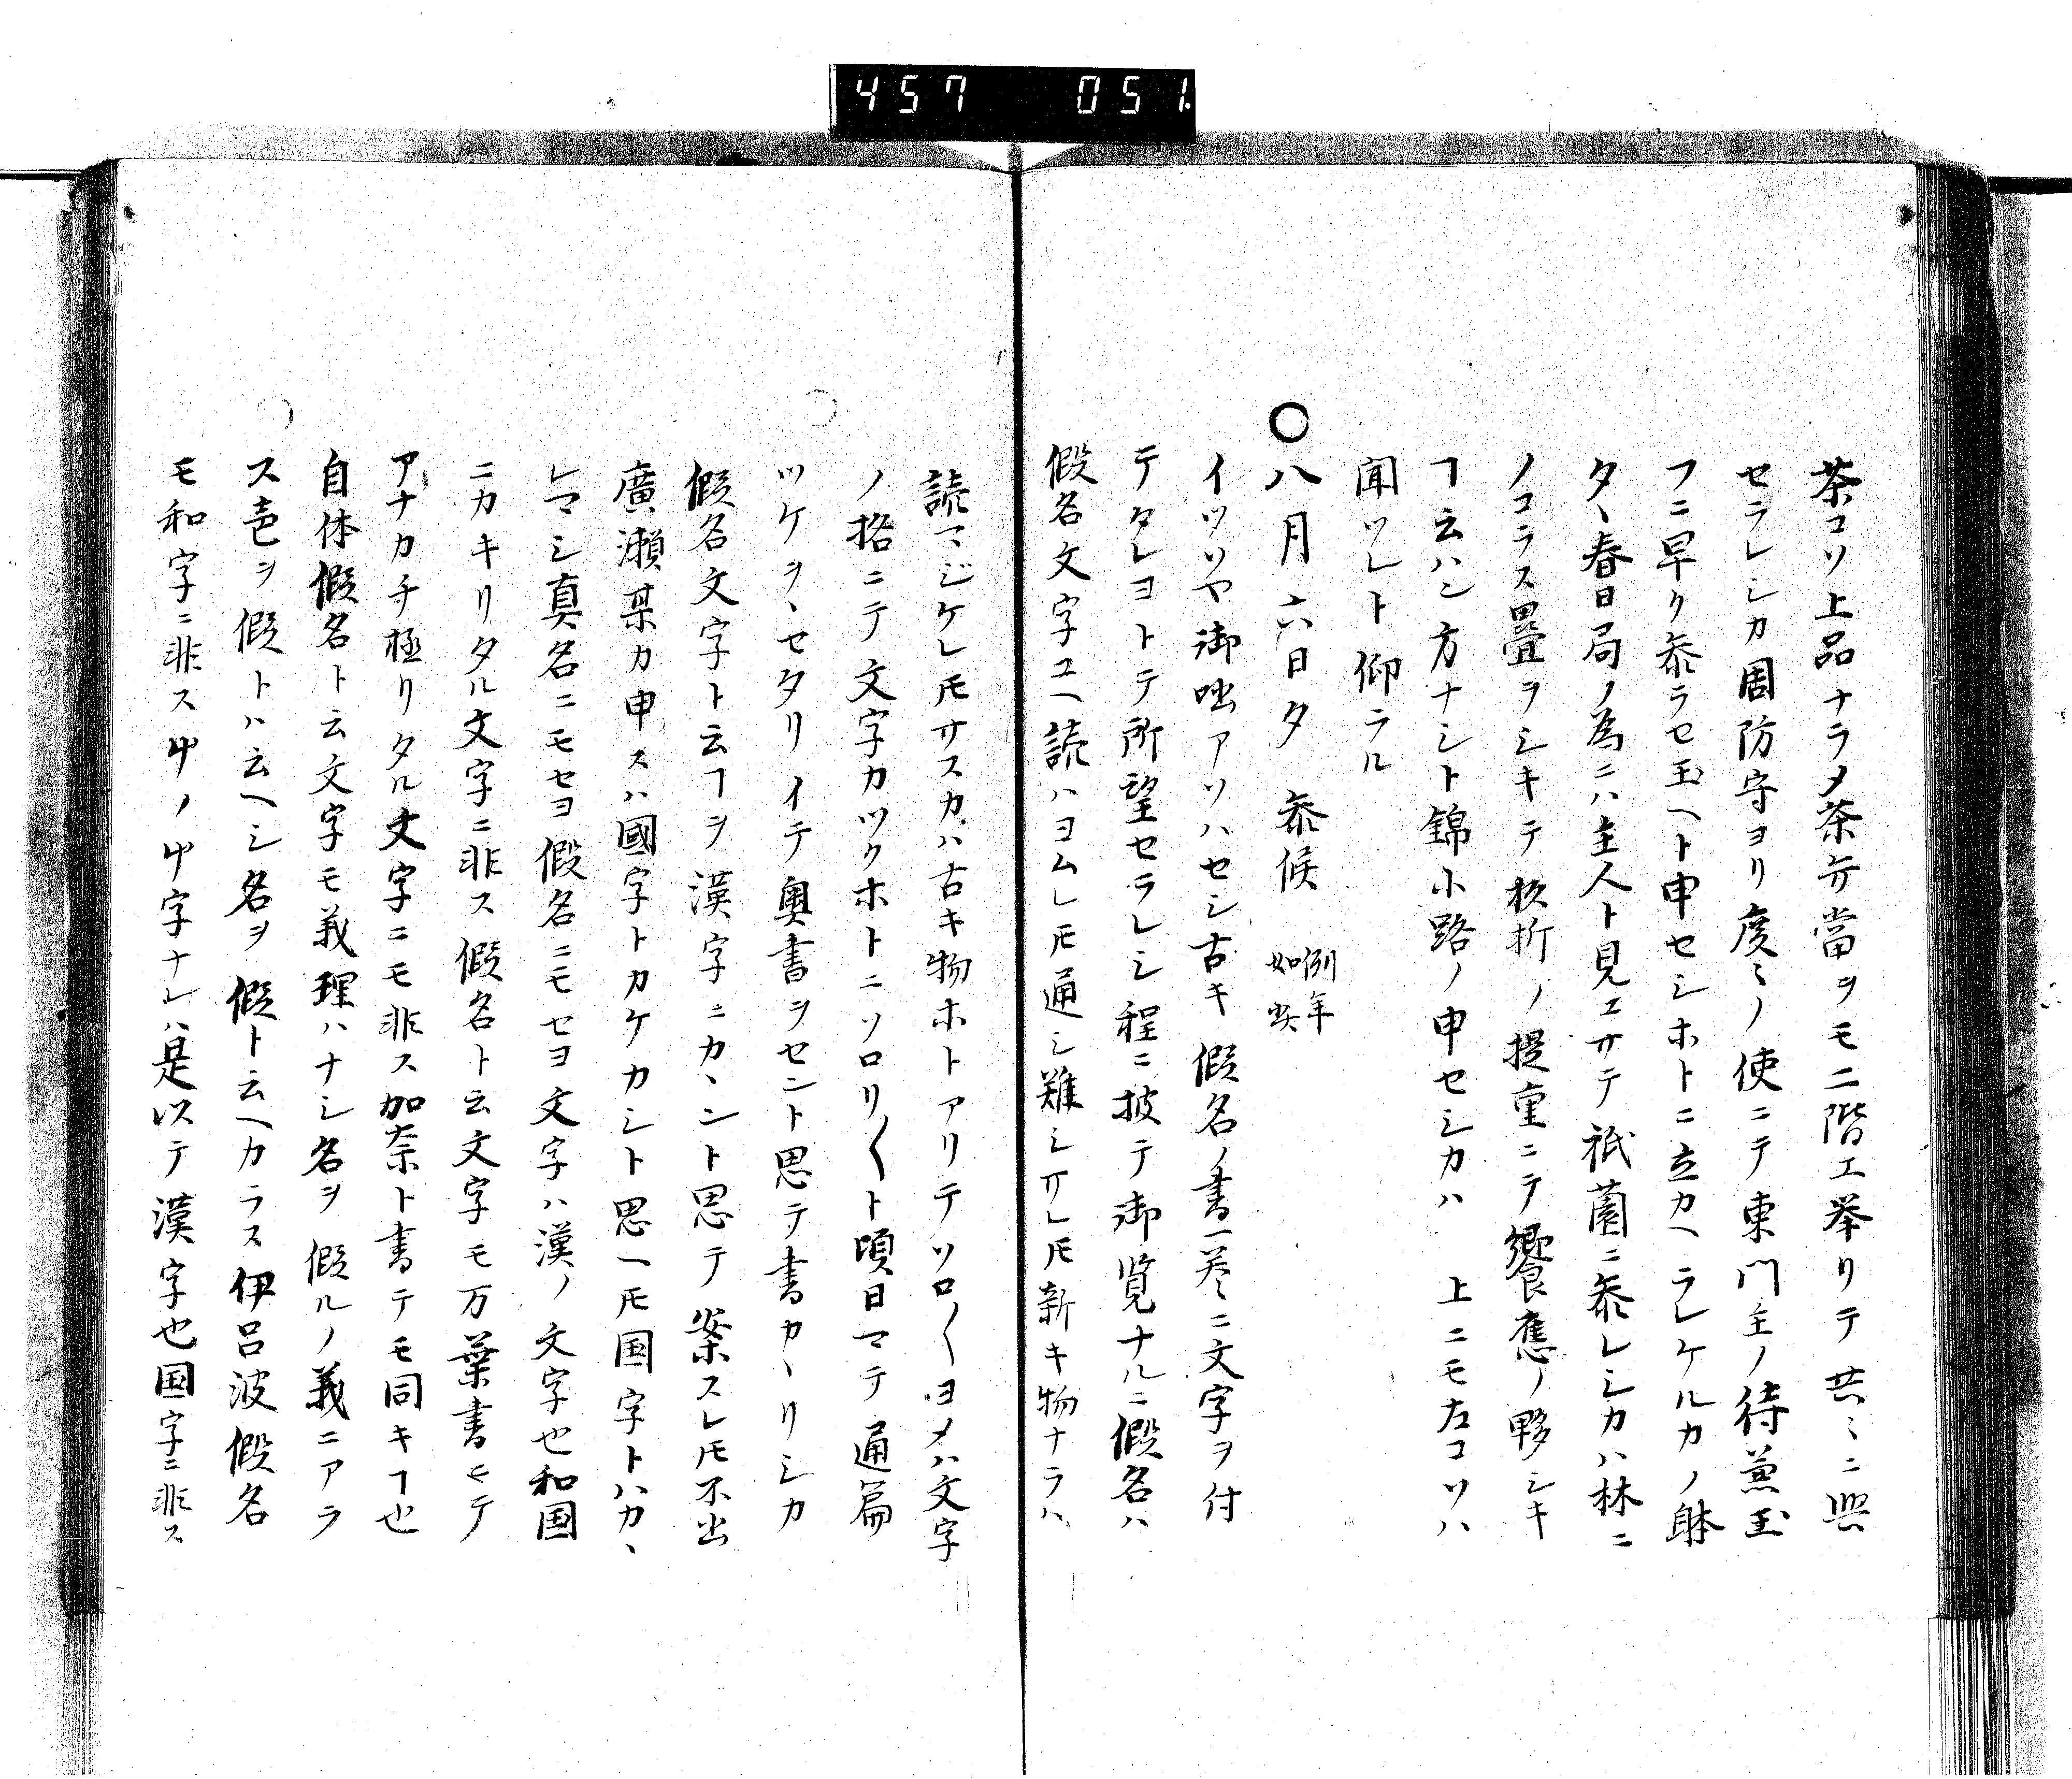 457 051
茶コソ上品ナラメ茶弁當ヲモ二階エ挙リテ共ミニ興
セラレシカ周防守ヨリ度ミノ使ニテ東門主ノ待兼玉
フニ早ク叅ラセ玉ヘト申セシホトニ立カヘラレケルカノ躰
タヽ春日局ノ為ニハ主人ト見エサテ祇薗ニ叅レシカハ林ニ
ノコラス畳ヲシキテ桜折ノ提重ニテ饗應ノ夥シキ
ヿ云ハン方ナシト錦小路ノ申セシカハ 上ニモ左コソハ
聞ツレト仰ラル
〇八月六日夕 叅候 例年如
イツソヤ御咄アソハセシ古キ假名ノ書一巻ミニ文字ヲ付
テタレヨトテ所望セラレシ程ニ披テ御覧ナルニ假名ハ
假名文字エヘ読ハヨムレ𪜈通シ難シサレ𪜈新キ物ナラハ
読マジケレ𪜈サスカハ古キ物ホトアリテソロ〱ヨメハ文字
ノ格ニテ文字カツクホトニソロリ〱ト頃日マテ通篇
ツケヲヽセタリイテ奥書ヲセント思テ書カヽリシカ
假名文字ト云ヿヲ漢字ニカヽント思テ案スレ𪜈不出
廣瀬某カ申スハ國字トカケカシト思ヘ𪜈国字トハカヽ
レマシ真名ニモセヨ假名ニモセヨ文字ハ漢ノ文字也和国
ニカキリタル文字ニ非ス假名ト云文字モ万葉書ヒテ
アナカチ極リタル文字ニモ非ス加奈ト書テモ同キヿ也
自体假名ト云文字モ義理ハナシ名ヲ假ルノ義ニアラ
ス壱ヲ假トハ云ヘシ名ヲ假ト云ヘカラス伊呂波假名
モ和字ニ非ス中ノ中字ナレハ是以テ漢字也国字ニ非ス